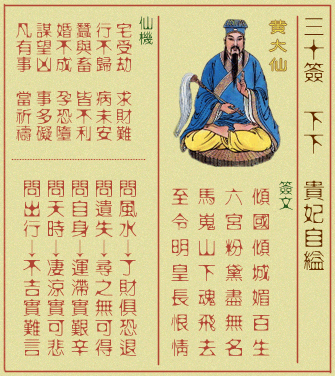 三十簽 下下 貴妃自縊
黃大仙
簽文
傾國傾城媚百生
六宮粉黛盡無名
馬嵬山下魂飛去
至令明皇長恨情
仙機
宅受劫 求財難
行不歸 病未安
蠶與畜 皆不利
婚不成 孕恐墮
謀望凶 事多礙
凡有事 當祈禱
問風水→了財俱恐退
問遺失→尋之無可得
問自身→運滯實艱辛
問天時→淒涼實可悲
問出行→不吉實難言